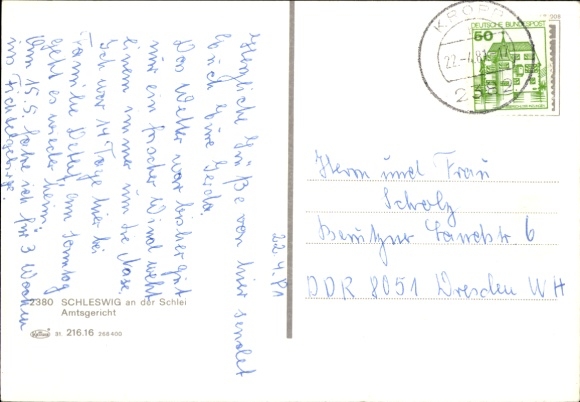 22.4.81
Herzliche Grüße von hier sendet
Euch Eure Gerda.
Das Wetter war bisher gut
nur ein frischer Wind weht
einem immer um die Nase.
Ich war 14 Tage hier bei
Familie Detlef, am Sonntag
geht es wieder heim.
Am 15.5. fahre ich für 3 Wochen
ins Fichtelgebirge.
2380 SCHLESWIG an der Schlei
Amtsgericht
31 216.16 268 400
KROPP
22.-4.81
50
DEUTSCHE BUNDESPOST
Herrn und Frau
Scholz
Bautzner Landstr. 6
DDR 8051 Dresden WH